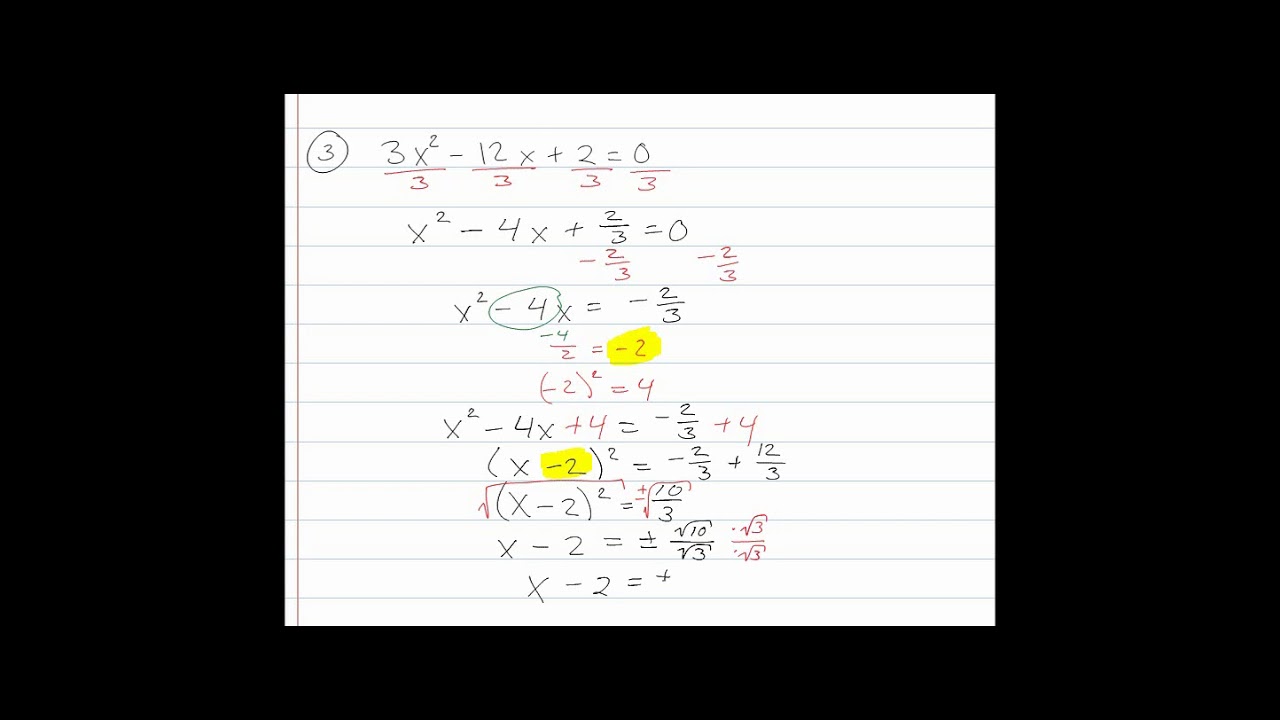 ③ 3x² - 12x + 2 = 0
3 3 3 3
x² - 4x + 2/3 = 0
- 2/3 - 2/3
x² - 4x = - 2/3
-4/2 = -2
(-2)² = 4
x² - 4x + 4 = - 2/3 + 4
(x - 2)² = - 2/3 + 12/3
√(x - 2)² = ±√10/3
x - 2 = ± √10/√3 ·√3/·√3
x - 2 = +